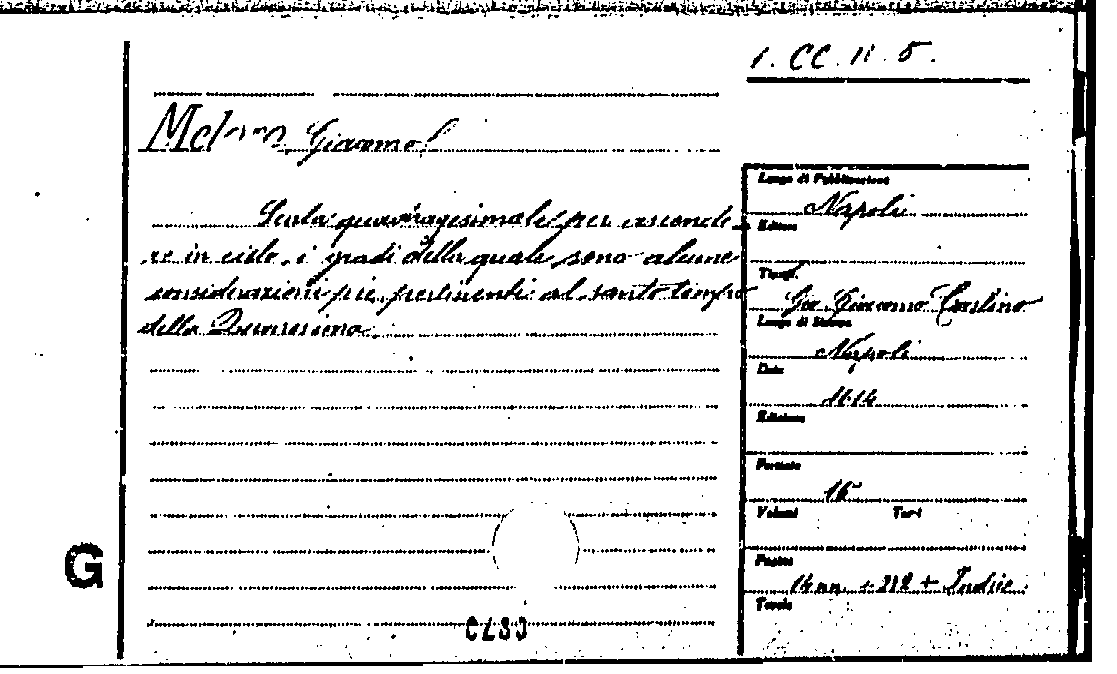 1. CC. 11. 5.
Giacomo
Scala quadragesimale per asconde-
re in cielo, i gradi della quale sono alcune
considerazioni più pertinenti al santo tempo
della Quaresima.
Luogo di Pubblicazione
Napoli
Editore
Tipogr.
Gio. Giacomo Carlino
Luogo di Stampa
Napoli
Data
Edizione
Formato
16
Volumi Tomi
Pagine
14 nn. + 212 + Indice
Tavole
G